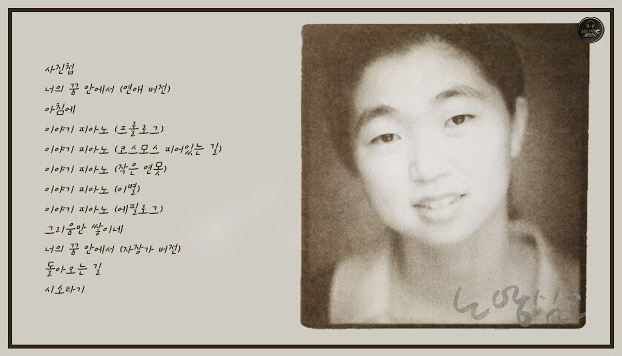 사진첩
너의 꿈 안에서 (연애 버전)
아침에
이야기 피아노 (프롤로그)
이야기 피아노 (코스모스 피어있는 길)
이야기 피아노 (작은 연못)
이야기 피아노 (이별)
이야기 피아노 (에필로그)
그리움만 쌓이네
너의 꿈 안에서 (자장가 버전)
돌아오는 길
시소타기
노영심